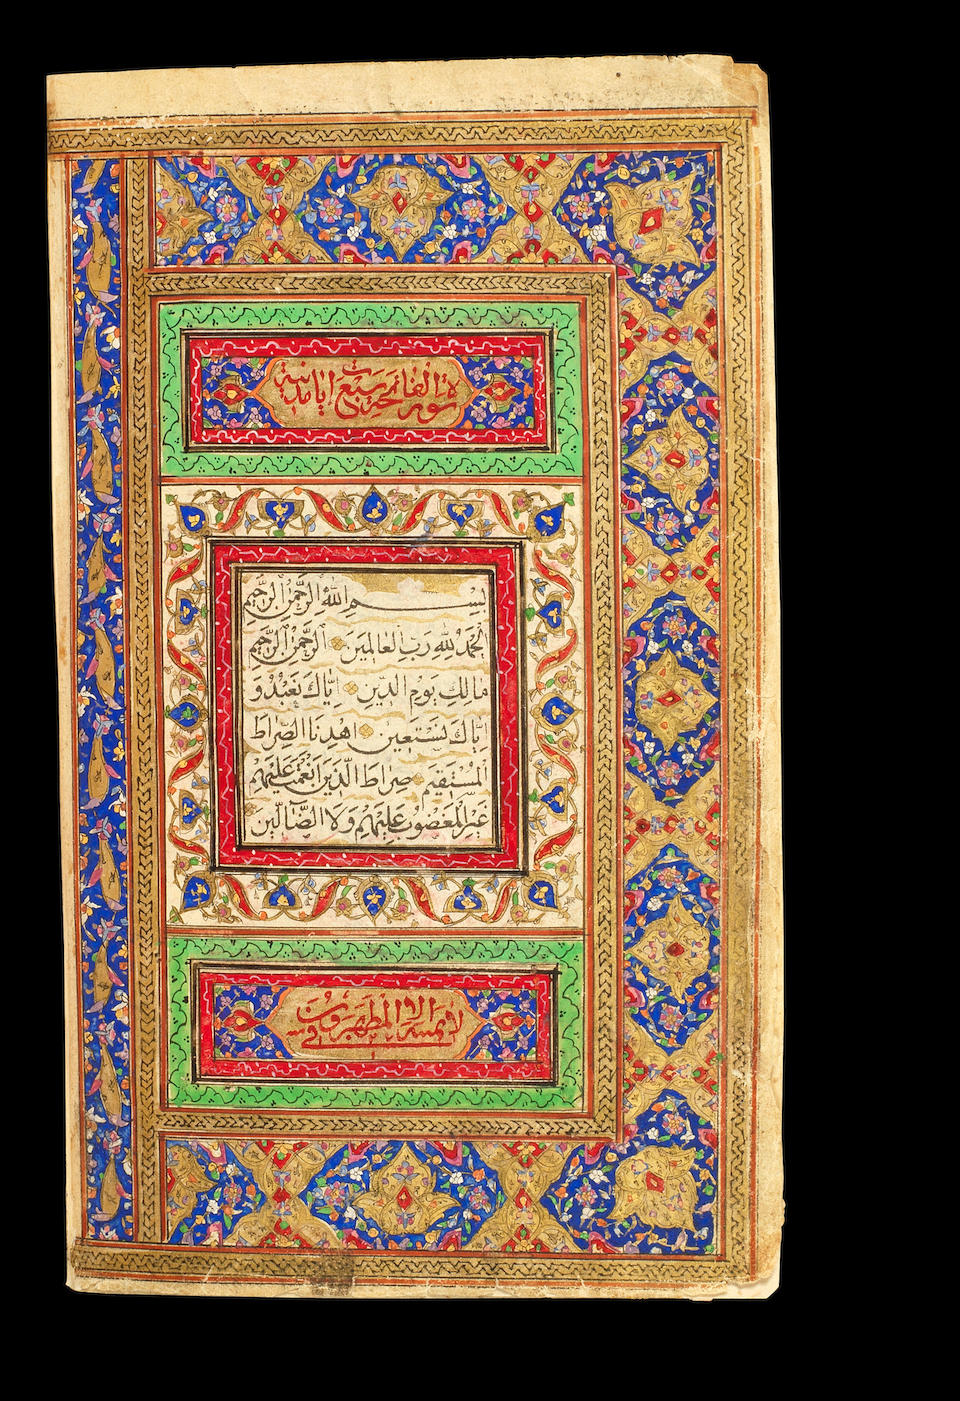 سورة الفاتحة سبع آیات مدنیة
بِسْمِ اللّٰهِ الرَّحْمٰنِ الرَّحِيمِ
اَلْحَمْدُ لِلّٰهِ رَبِّ الْعَالَمِينَ الرَّحْمٰنِ الرَّحِيمِ
مَالِكِ يَوْمِ الدِّينِ اِيَّاكَ نَعْبُدُ وَ
اِيَّاكَ نَسْتَعِين اِهْدِنَا الصِّرَاطَ
الْمُسْتَقِيمَ صِرَاطَ الَّذِينَ اَنْعَمْتَ عَلَيْهِمْ
غَيْرِ الْمَغْضُوبِ عَلَيْهِمْ وَلَا الضَّآلِّينَ
لا یمسه الا المطهرون فی